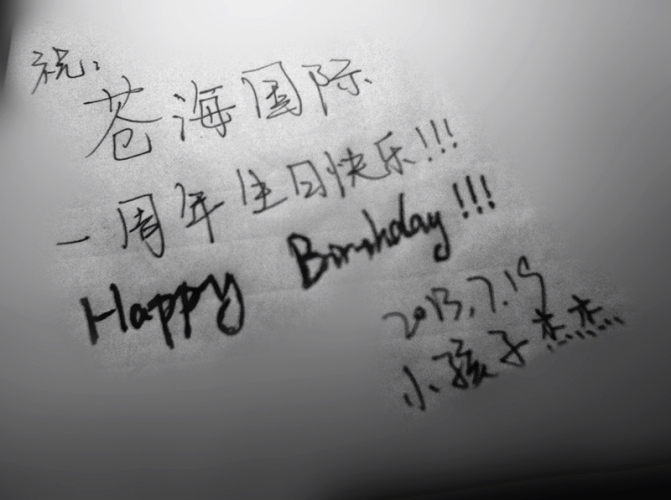 祝:
苍海国际
一周年生日快乐!!!
Happy Birthday!!!
2013.7.19
小孩子杰杰...